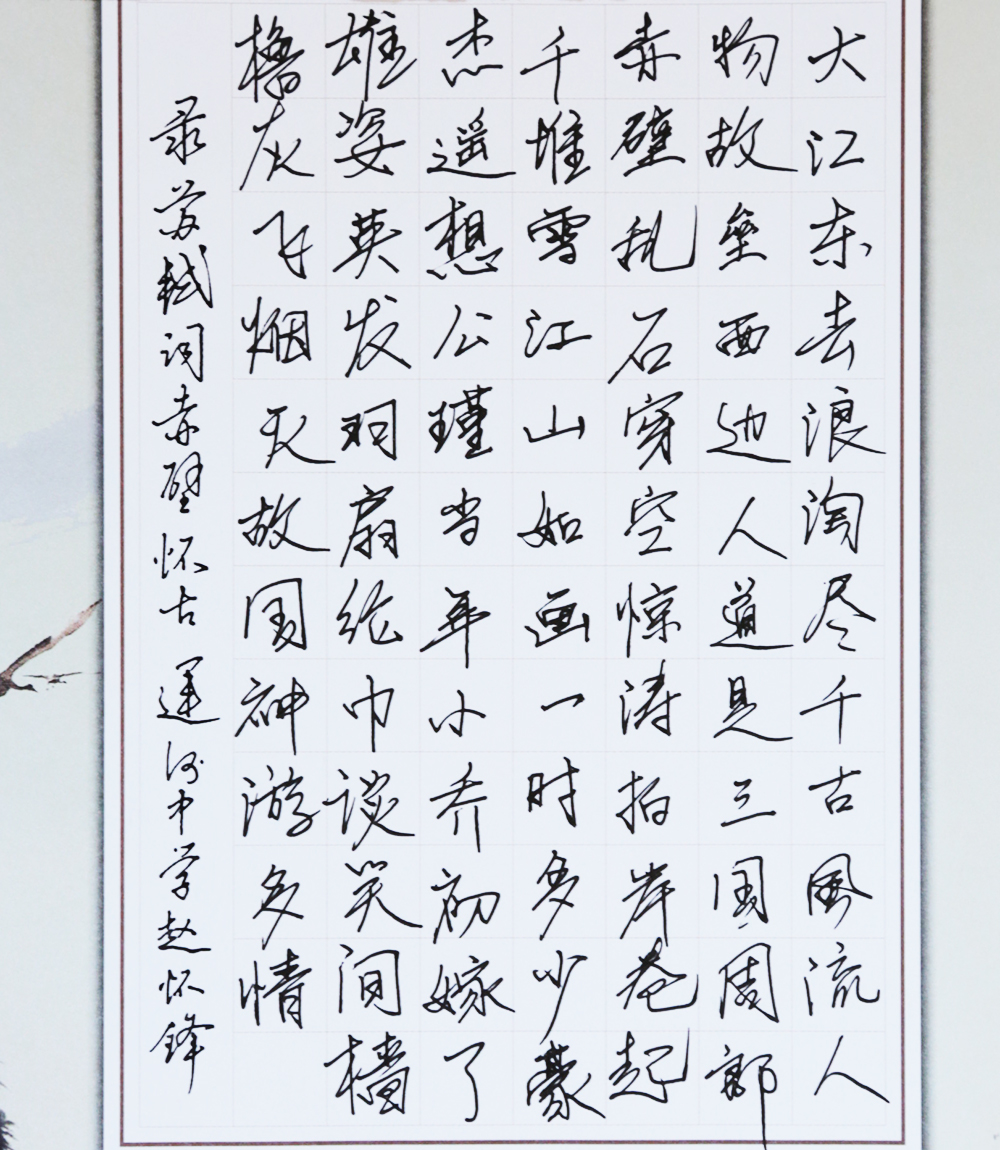 大江东去浪淘尽千古风流人
物故垒西边人道是三国周郎
赤壁乱石穿空惊涛拍岸卷起
千堆雪江山如画一时多少豪
杰遥想公瑾当年小乔初嫁了
雄姿英发羽扇纶巾谈笑间樯
橹灰飞烟灭故国神游多情
录苏轼词赤壁怀古 运河中学赵怀锋